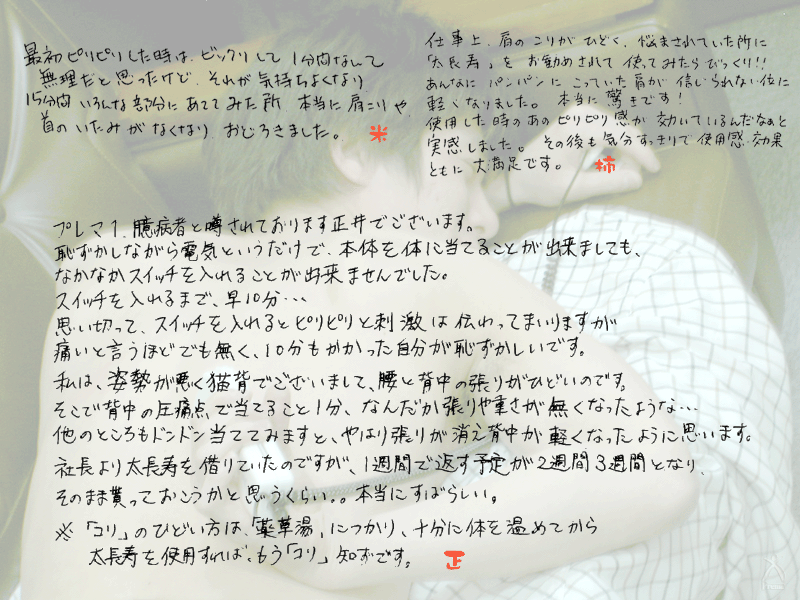 最初ピリピリした時は、ビックリして1分間なんて
無理だと思ったけど、それが気持ちよくなり
15分間いろんな部分にあててみた所、本当に肩こりや
首のいたみがなくなり、おどろきました。 米
仕事上、肩のこりがひどく、悩まされていた所に
「太長寿」を お勧めされて 使ってみたらびっくり!!
あんなに パンパンに こっていた肩が 信じられない位に
軽くなりました。 本当に 驚きです!
使用した時のあのピリピリ感が 効いているんだなぁと
実感しました。 その後も気分すっきりで使用感・効果
ともに 大満足です。 柿
プレマ1、臆病者と噂されております正井でございます。
恥ずかしながら電気というだけで、本体を体に当てることが出来ましても、
なかなかスイッチを入れることが出来ませんでした。
スイッチを入れるまで、早10分…
思い切って、スイッチを入れるとピリピリと刺激は伝わってまいりますが
痛いと言うほどでも無く、10分もかかった自分が恥ずかしいです。
私は、姿勢が悪く猫背でございまして、腰と背中の張りがひどいのです。
そこで背中の圧痛点で当てること1分、なんだか張りや重さが無くなったような…
他のところもドンドン当ててみますと、やはり張りが消え背中が軽くなったように思います。
社長より太長寿を借りていたのですが、1週間で返す予定が2週間3週間となり、
そのまま貰っておこうかと思うくらい。。本当にすばらしい。
※「コリ」のひどい方は、「薬草湯」につかり、十分に体を温めてから
太長寿を使用すれば、もう「コリ」知らずです。 正